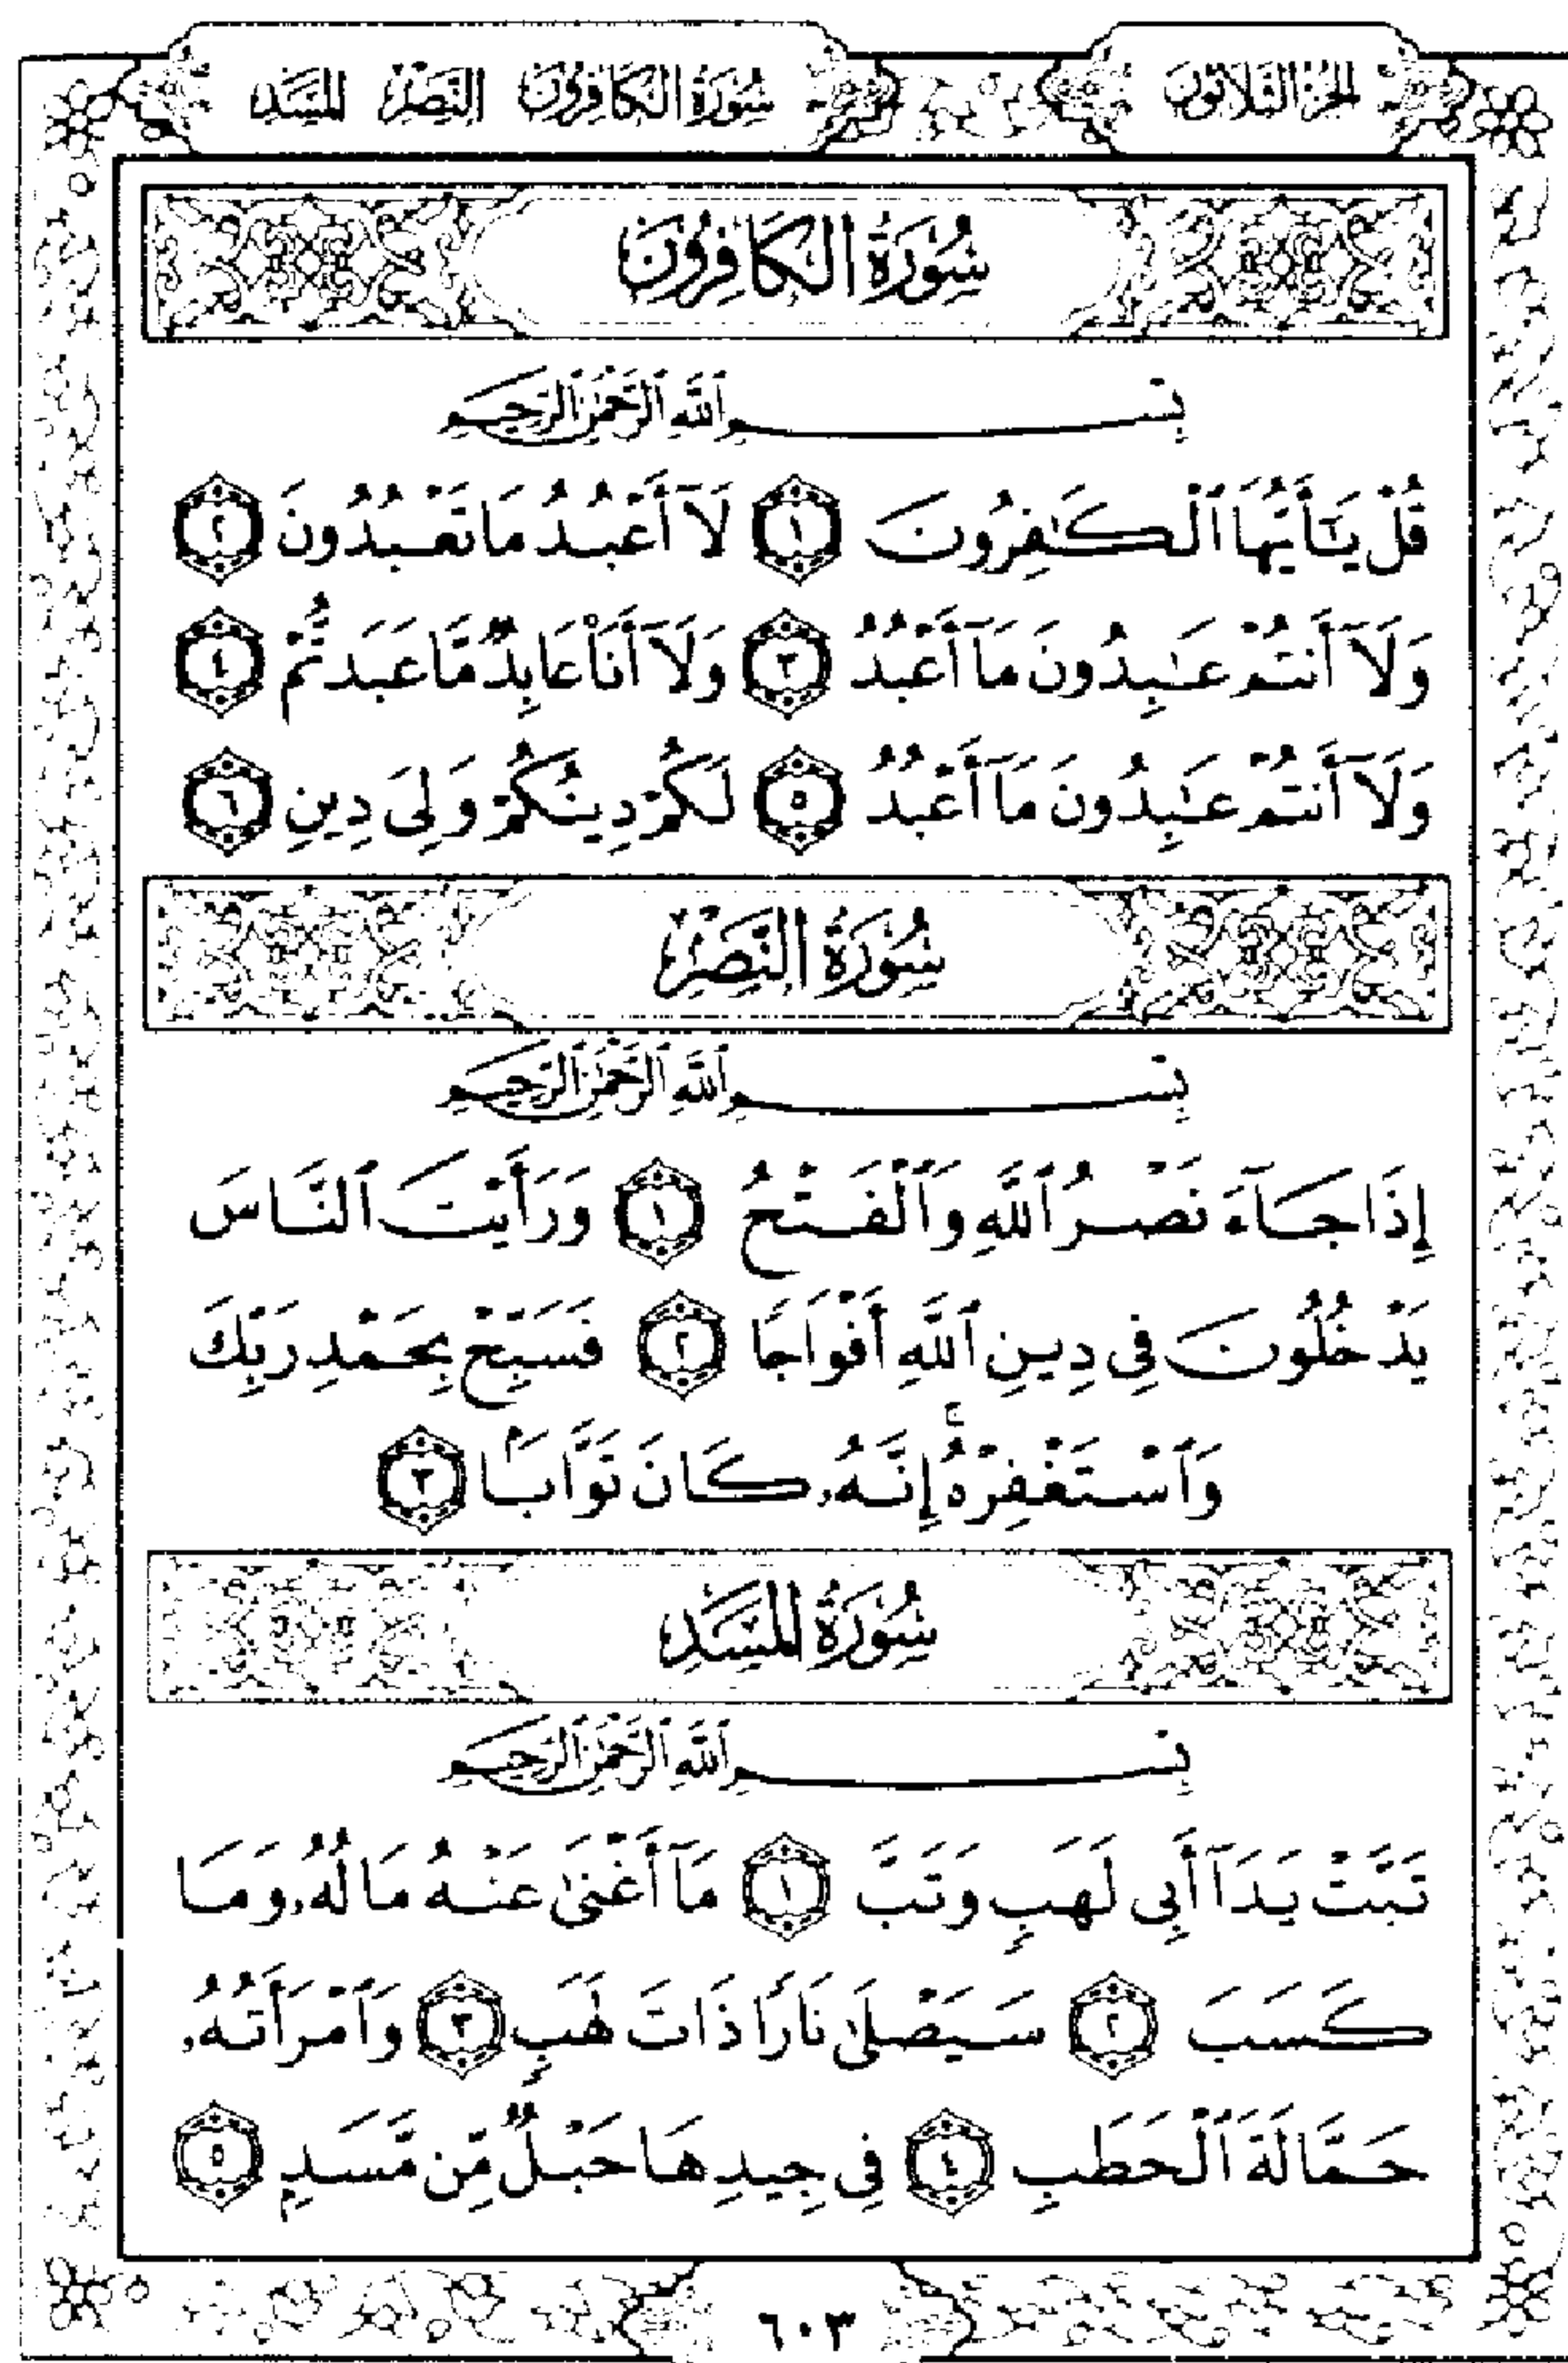 الجزء الثلاثون
سورة الكافرون النصر المسد
سُورَةُ الكَافِرُونَ
بِسْمِ ٱللَّهِ ٱلرَّحْمَٰنِ ٱلرَّحِيمِ
قُلْ يَٰٓأَيُّهَا ٱلْكَٰفِرُونَ ١ لَآ أَعْبُدُ مَا تَعْبُدُونَ ٢
وَلَآ أَنتُمْ عَٰبِدُونَ مَآ أَعْبُدُ ٣ وَلَآ أَنَا۠ عَابِدٌ مَّا عَبَدتُّمْ ٤
وَلَآ أَنتُمْ عَٰبِدُونَ مَآ أَعْبُدُ ٥ لَكُمْ دِينُكُمْ وَلِىَ دِينِ ٦
سُورَةُ النَّصْرِ
بِسْمِ ٱللَّهِ ٱلرَّحْمَٰنِ ٱلرَّحِيمِ
إِذَا جَآءَ نَصْرُ ٱللَّهِ وَٱلْفَتْحُ ١ وَرَأَيْتَ ٱلنَّاسَ
يَدْخُلُونَ فِى دِينِ ٱللَّهِ أَفْوَاجًا ٢ فَسَبِّحْ بِحَمْدِ رَبِّكَ
وَٱسْتَغْفِرْهُ ۚ إِنَّهُۥ كَانَ تَوَّابًۢا ٣
سُورَةُ المَسَدِ
بِسْمِ ٱللَّهِ ٱلرَّحْمَٰنِ ٱلرَّحِيمِ
تَبَّتْ يَدَآ أَبِى لَهَبٍ وَتَبَّ ١ مَآ أَغْنَىٰ عَنْهُ مَالُهُۥ وَمَا
كَسَبَ ٢ سَيَصْلَىٰ نَارًا ذَاتَ لَهَبٍ ٣ وَٱمْرَأَتُهُۥ
حَمَّالَةَ ٱلْحَطَبِ ٤ فِى جِيدِهَا حَبْلٌ مِّن مَّسَدٍۭ ٥
٦٠٣